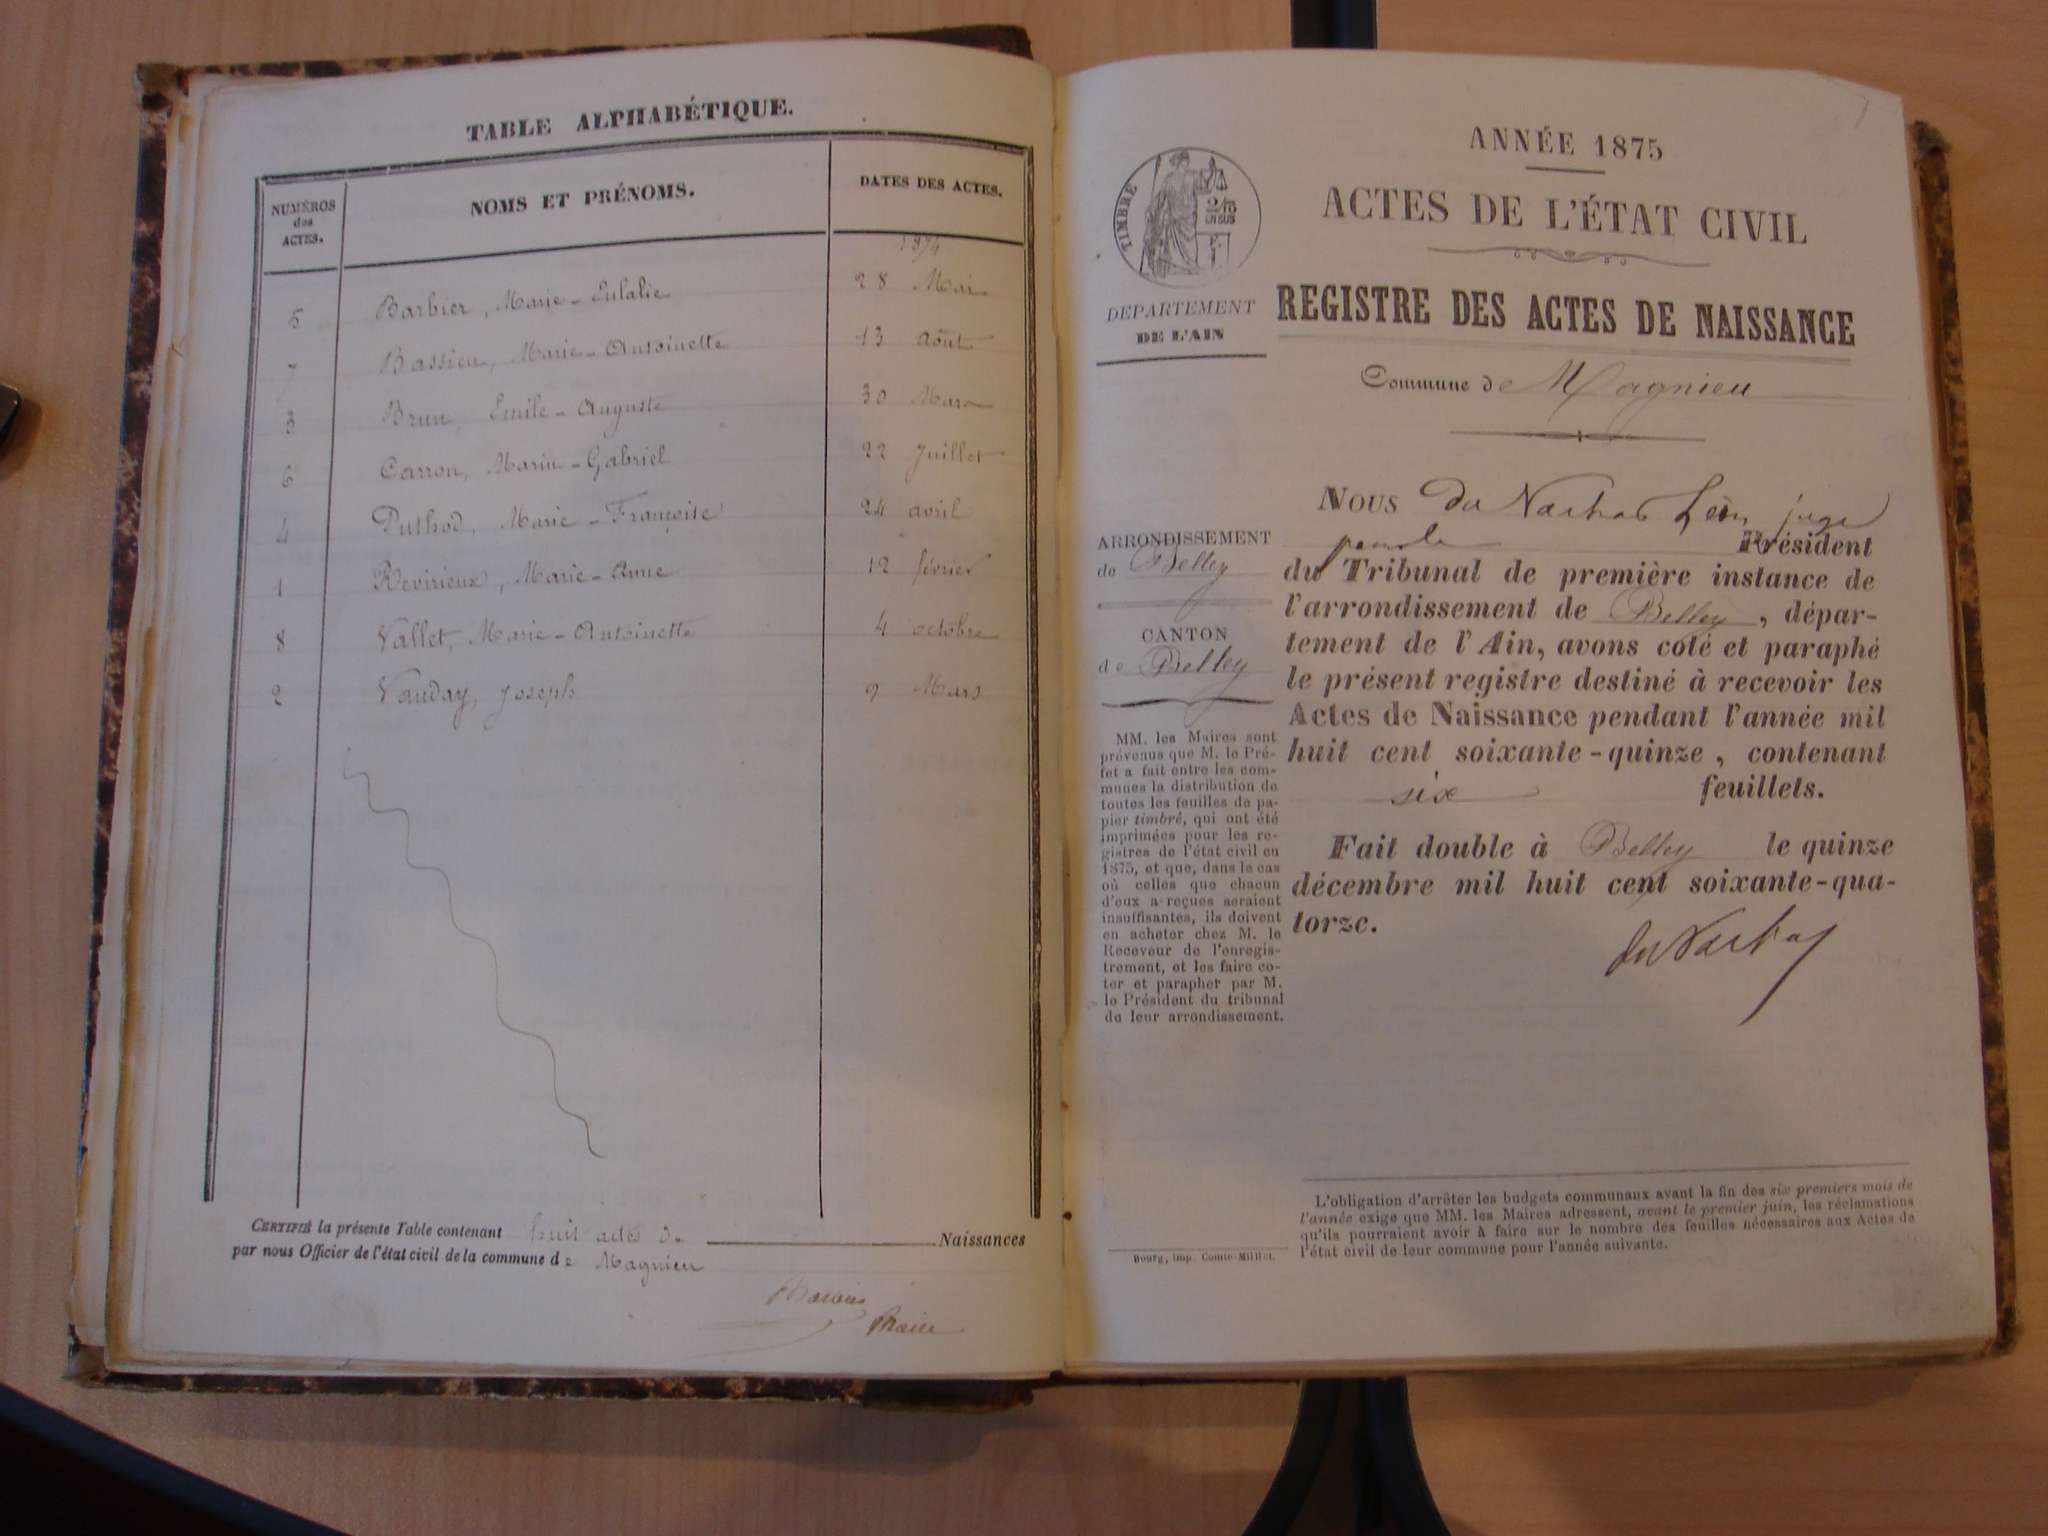 TABLE ALPHABÉTIQUE.
NUMÉROS des ACTES. NOMS ET PRÉNOMS. DATES DES ACTES.
1874
5 Barbier, Marie-Eulalie 28 Mai
7 Bassieu, Marie-Antoinette 13 Août
3 Brun, Emile-Auguste 30 Mars
6 Carron, Marin-Gabriel 22 Juillet
4 Puthod, Marie-Françoise 24 avril
1 Revirieux, Marie-Anne 12 février
8 Vallet, Marie-Antoinette 4 octobre
2 Vauday, Joseph 9 Mars
CERTIFIÉ la présente Table contenant huit actes de Naissances
par nous Officier de l'état civil de la commune de Magnieu
Maire
ANNÉE 1875
ACTES DE L'ÉTAT CIVIL
REGISTRE DES ACTES DE NAISSANCE
Commune de Magnieu
TIMBRE
2/10
EN SUS
DEPARTEMENT
DE L'AIN
ARRONDISSEMENT
de Belley
CANTON
de Belley
MM. les Maires sont
prévenus que M. le Pré-
fet a fait entre les com-
munes la distribution de
toutes les feuilles de pa-
pier timbré, qui ont été
imprimées pour les re-
gistres de l'état civil en
1875, et que, dans le cas
où celles que chacun
d'eux a reçues seraient
insuffisantes, ils doivent
en acheter chez M. le
Receveur de l'enregis-
trement, et les faire co-
ter et parapher par M.
le Président du tribunal
de leur arrondissement.
NOUS du Léon, juge
Président
du Tribunal de première instance de
l'arrondissement de Belley, dépar-
tement de l'Ain, avons coté et paraphé
le présent registre destiné à recevoir les
Actes de Naissance pendant l'année mil
huit cent soixante-quinze, contenant
six feuillets.
Fait double à Belley le quinze
décembre mil huit cent soixante-qua-
torze.
L'obligation d'arrêter les budgets communaux avant la fin des six premiers mois de
l'année exige que MM. les Maires adressent, avant le premier juin, les réclamations
qu'ils pourraient avoir à faire sur le nombre des feuilles nécessaires aux Actes de
l'état civil de leur commune pour l'année suivante.
Bourg, imp. Comte-Milliet.